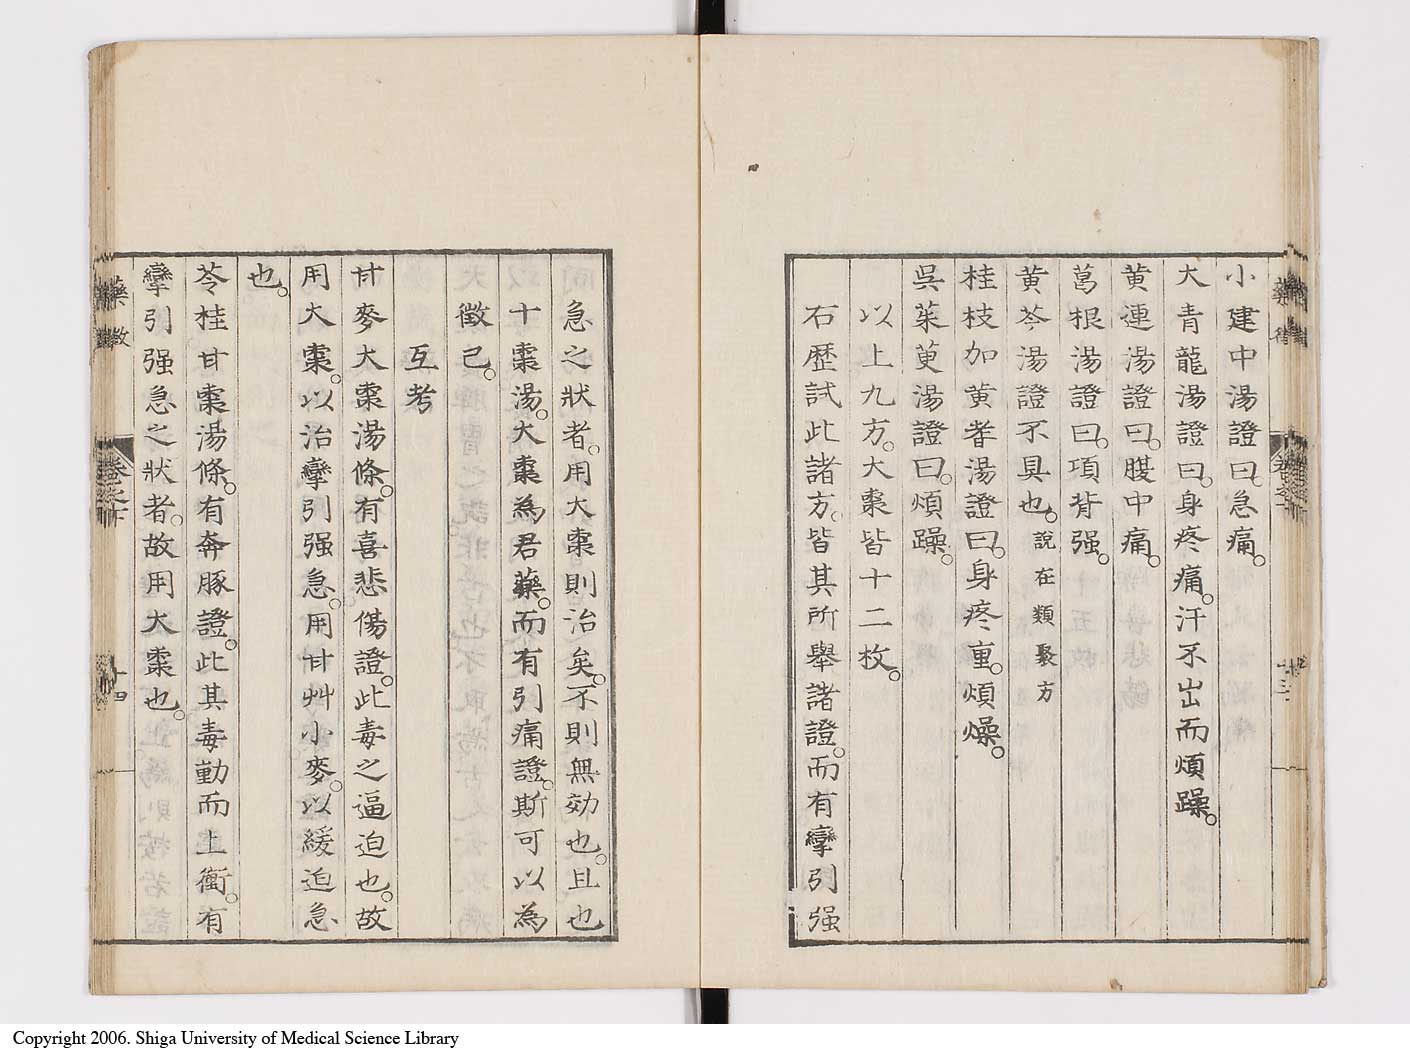 小建中湯證曰。急痛。
大青龍湯證曰。身疼痛。汗不出而煩躁。
黄連湯證曰。腹中痛。
葛根湯證曰。項背强。
黄芩湯證不具也。說在類聚方
桂枝加黄耆湯證曰。身疼重。煩燥。
呉茱萸湯證曰。煩躁。
以上九方。大棗皆十二枚。
右歷試此諸方。皆其所舉諸證。而有攣引强
急之狀者。用大棗則治矣。不則無効也。且也
十棗湯。大棗為君藥。而有引痛證。斯可以為
徵已。
互考
甘麥大棗湯條。有喜悲傷證。此毒之逼迫也。故
用大棗。以治攣引强急。用甘艸小麥。以緩迫急
也。
苓桂甘棗湯條。有奔豚證。此其毒動而上衝。有
攣引强急之狀者。故用大棗也。
十四
Copyright 2006. Shiga University of Medical Science Library